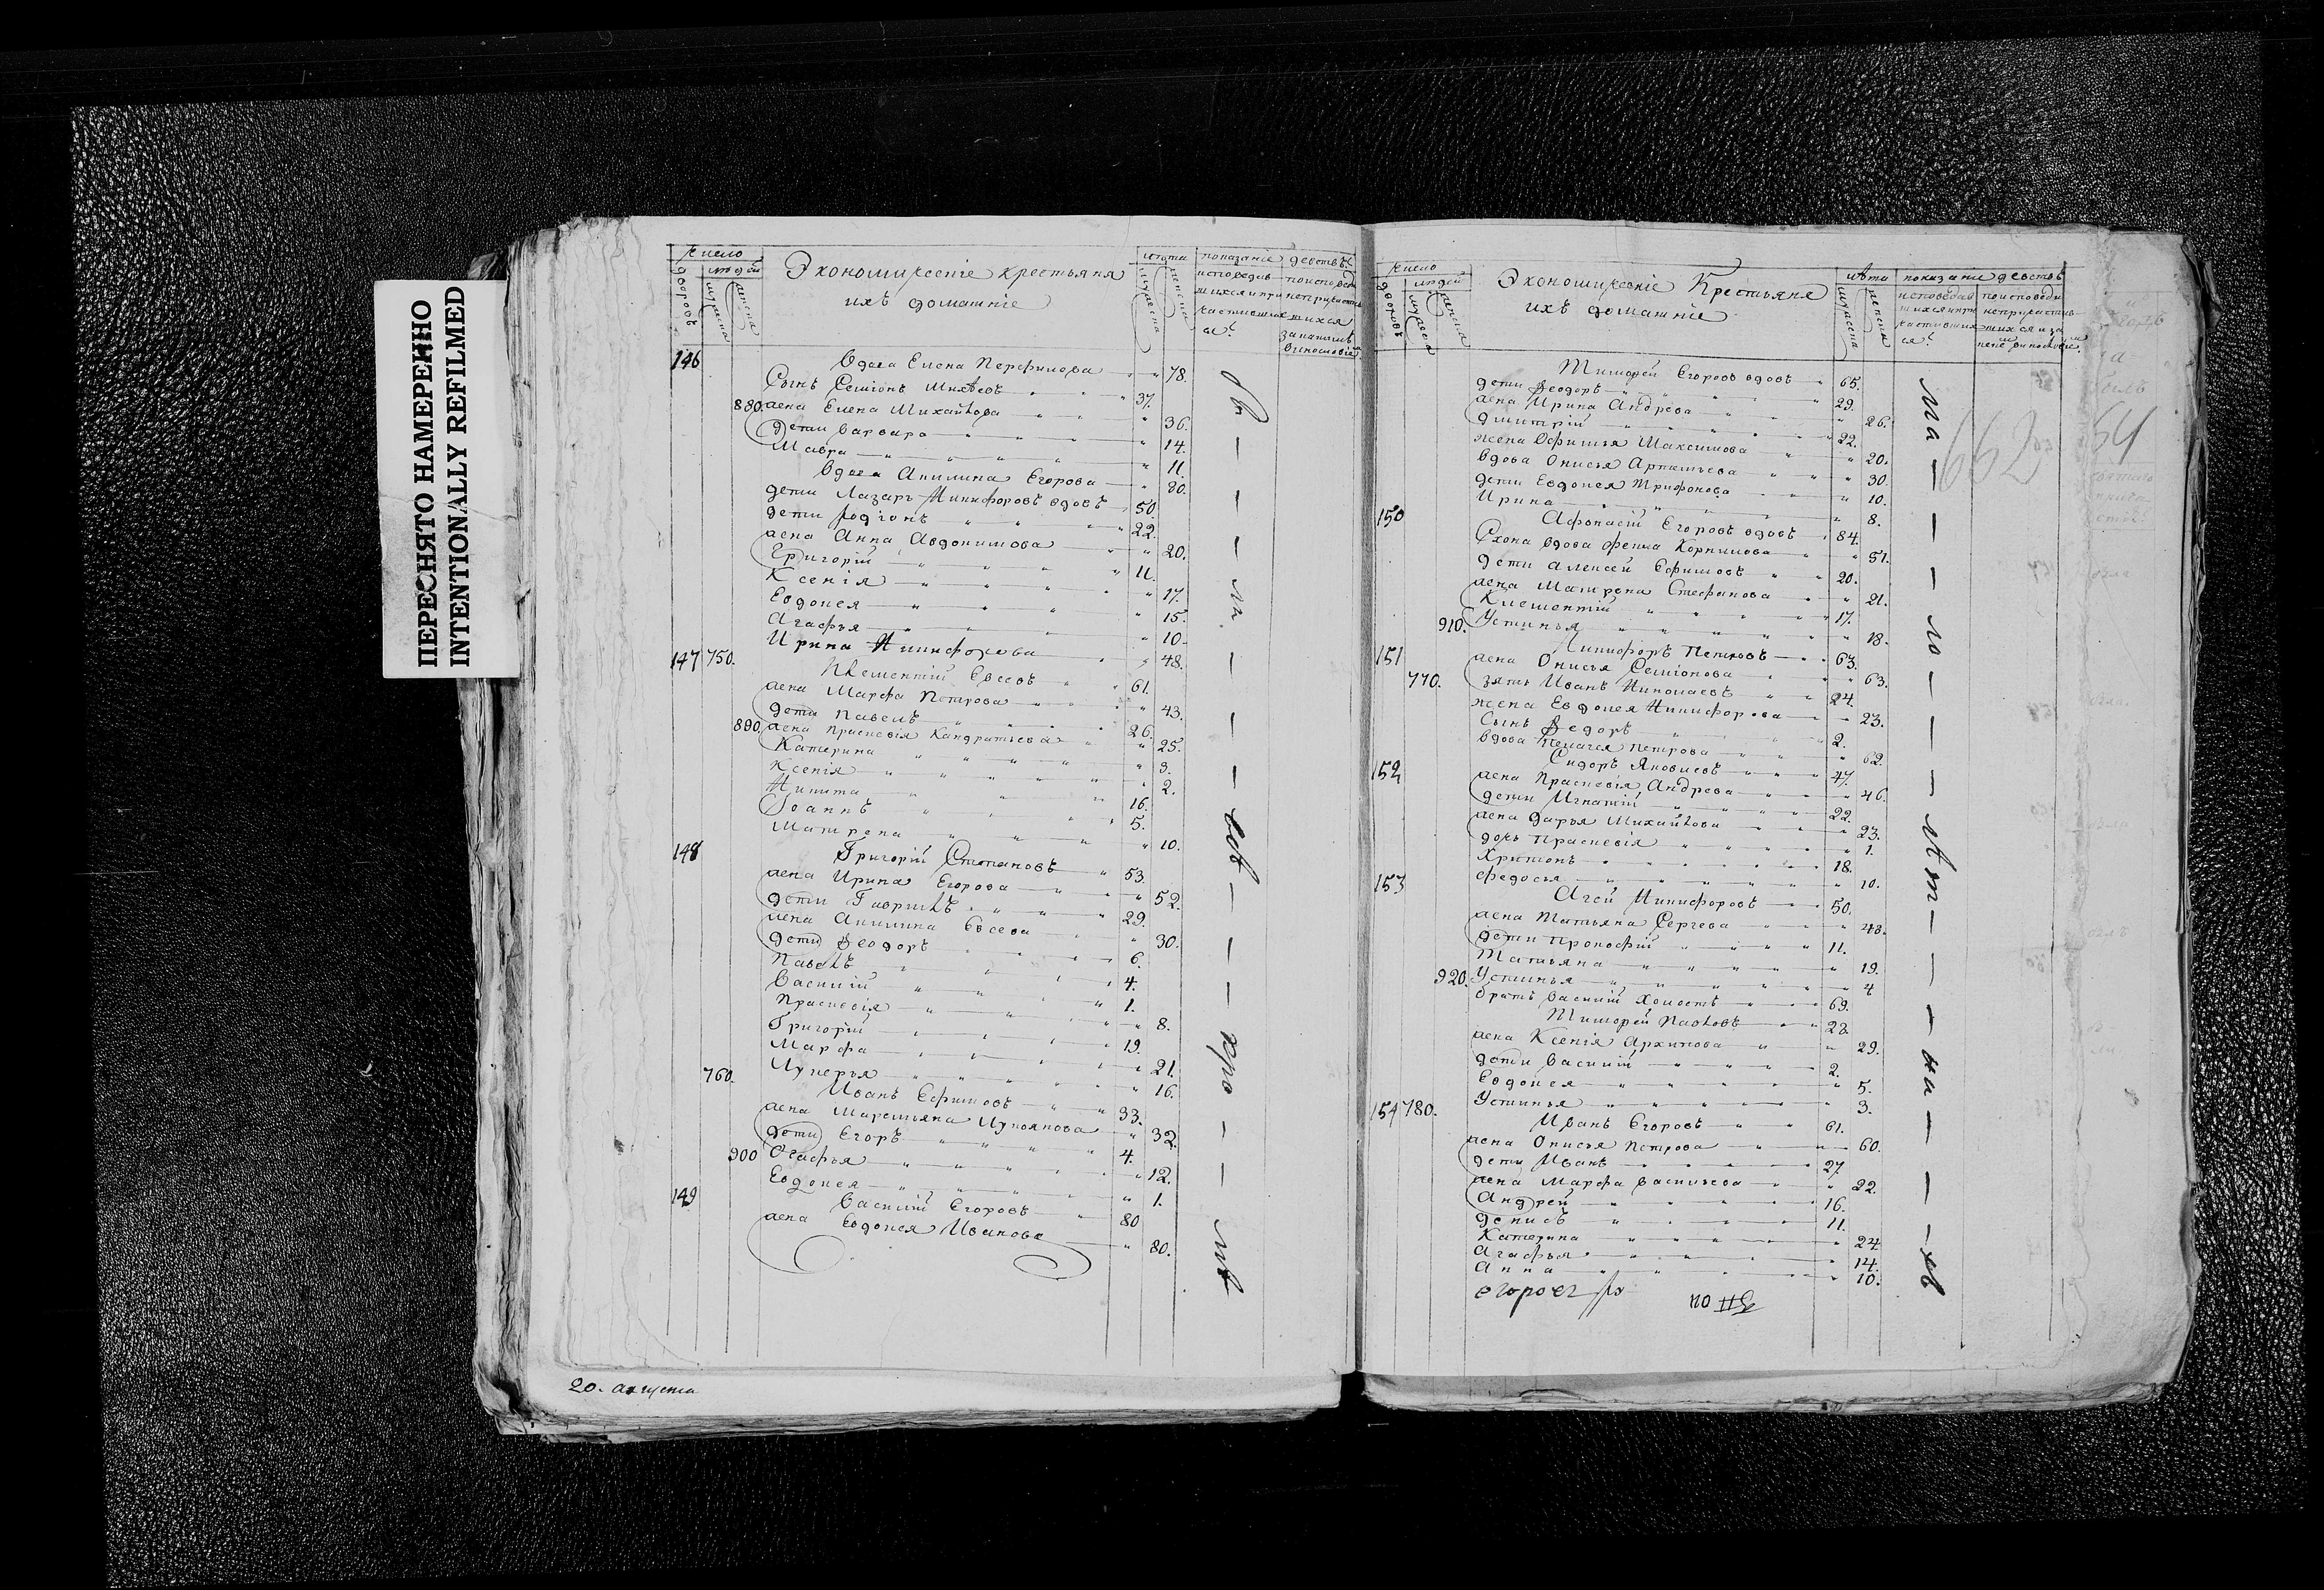 ПЕРЕСНЯТО НАМЕРЕННО
INTENTIONALLY REFILMED
число
дворовъ
людей
мужеска
женска
Экономическіе крестьяня
ихъ домашніе
лѣта
мужеска
женска
показаніе действъ
исповедав
шихся и при
частивших
ся
146 Вдова Елена Перфилова 78.
Сынъ Семіонъ 37.
880. жена Елена Михайлова 36.
дети Варвара 14.
Мавра 11.
Вдова Акилина Егорова 80.
дети Лазарь Никифоровъ вдовъ 50.
дети Родіонъ 22.
жена Анна Авдокимова 20.
Григорій 11.
Ксенія 17.
Евдокея 15.
Агафья 10.
Ирина Никифорова 48.
147 750. Клементій Евсевъ 61.
жена Марфа Петрова 43.
дети Павелъ 26.
890. жена Прасковія Кандратьева 25.
Катерина 3.
Ксенія 2.
Никита 16.
Іоаннъ 5.
Матрена 10.
148 Григорій Степановъ 53.
жена Ирина Егорова 52.
дети Гаврилъ 29.
жена Акилина Евсева 30.
дети Ѳеодоръ 6.
Павелъ 4.
Василій 1.
Прасковія 8.
Григорій 19.
Марфа 21.
760. Лукерья 16.
Иванъ Ефимовъ 33.
жена Маремьяна Лукоянова 32.
дети Егоръ 4.
900 Огафья 12.
Евдокея 1.
149 Василій Егоровъ 80
жена Евдокея Иванова 80.
20. августа
число
дворовъ
людей
мужеска
женска
Экономическіе Крестьяне
ихъ домашніе
лѣта
мужеска
женска
показание действъ
исповедав
шихся и при
частивших
ся
Тимофей Егоровъ вдовъ 65.
дети Ѳеодоръ 29.
жена Ирина Андрева 26.
Дмитрій 22.
жена Офимья Максимова 20.
вдова Онисья Артемьева 30.
дети Евдокея Трифонова 10.
Ирина 8.
150 Афонасій Егоровъ вдовъ 84.
Схона вдова Фекла Корнилова 51.
дети Алексей Ефимовъ 20.
жена Матрена Стефанова 21.
Клементій 17.
910. Устинья 18.
151 Никифоръ Петровъ 63.
жена Онисья Семіонова 63.
770. зять Иванъ Николаевъ 24.
жена Евдокея Никифорова 23.
Сынъ Ѳедоръ 2.
вдова Пелагея Петрова 62
152 Сидоръ Яковлевъ 47.
жена Прасковія Андрева 46.
дети Игнатій 22.
жена Дарья Михайлова 23.
дочь Прасковія 1.
Харитонъ 18.
Федосья 10.
153 Агей Никифоровъ 50.
жена Татьяна Сергева 48.
дети Прокофій 11.
Татьяна 19.
920. Устинья 4
братъ Василій холостъ 69.
Тимофей Павловъ 28
жена Ксенія Архипова 29.
дети Василій 2.
Евдокея 5.
Устинья 3.
154 780. Иванъ Егоровъ 61.
жена Онисья Петрова 60.
дети Иванъ 27.
жена Марфа Васильева 22.
Андрей 16.
Денисъ 11.
Катерина 24
Агафья 14.
Анна 10.
662
54